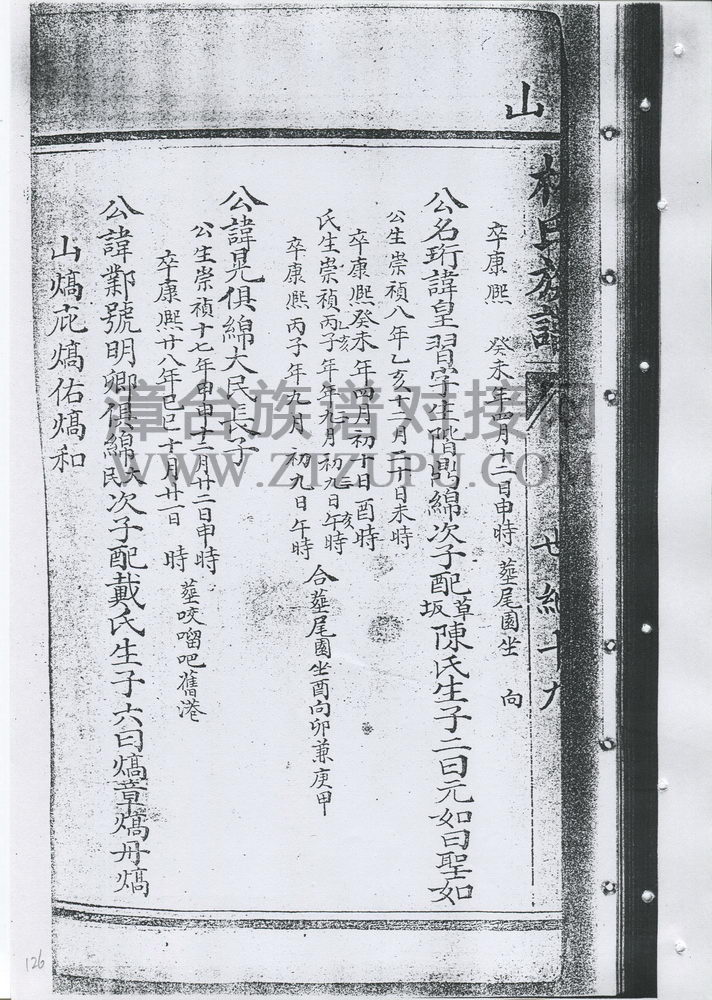 山
林氏族譜
世綿十九
卒康熙 癸未年四月十二日申時 塟尾園坐 向
公名珩諱皇習字生階鼎綿次子配草坂陳氏生子二曰元如曰聖如
公生崇禎八年乙亥十二月二十日未時
卒康熙癸未年四月初十日酉時
氏生崇禎丙子年九月初九日午時
卒康熙丙子年九月初九日午時
合塟尾園坐酉向卯兼庚甲
公諱晃俱綿大民長子
公生崇禎十七年甲申十二月廿二日申時
卒康熙廿八年己巳十月廿一日 時
塟咬𠺕吧舊港
公諱鄴號明卿俱綿大民次子配戴氏生子六曰熇章熇丹熇
山熇庇熇佑熇和
漳台族谱对接网
WWW.ZTZUPU.COM
126